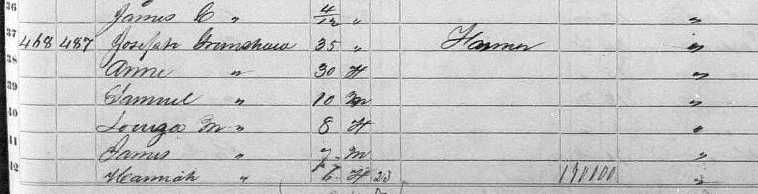 36 James C " 4/12 " "
37 468 487 Joseph Grimshaw 35 " Farmer "
38 Anne " 30 F "
39 Samuel " 10 M "
40 Louiza M " 8 F "
41 James " 7 M "
42 Hannah " F 23 "